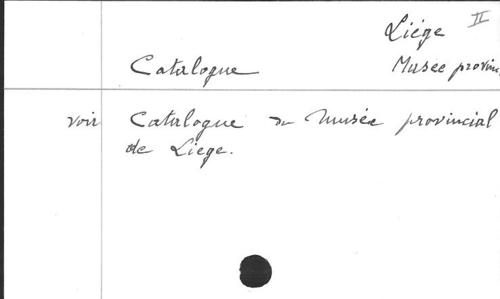 Liége II
Catalogue Musee provin
voir Catalogue du Musée provincial
de Liege.